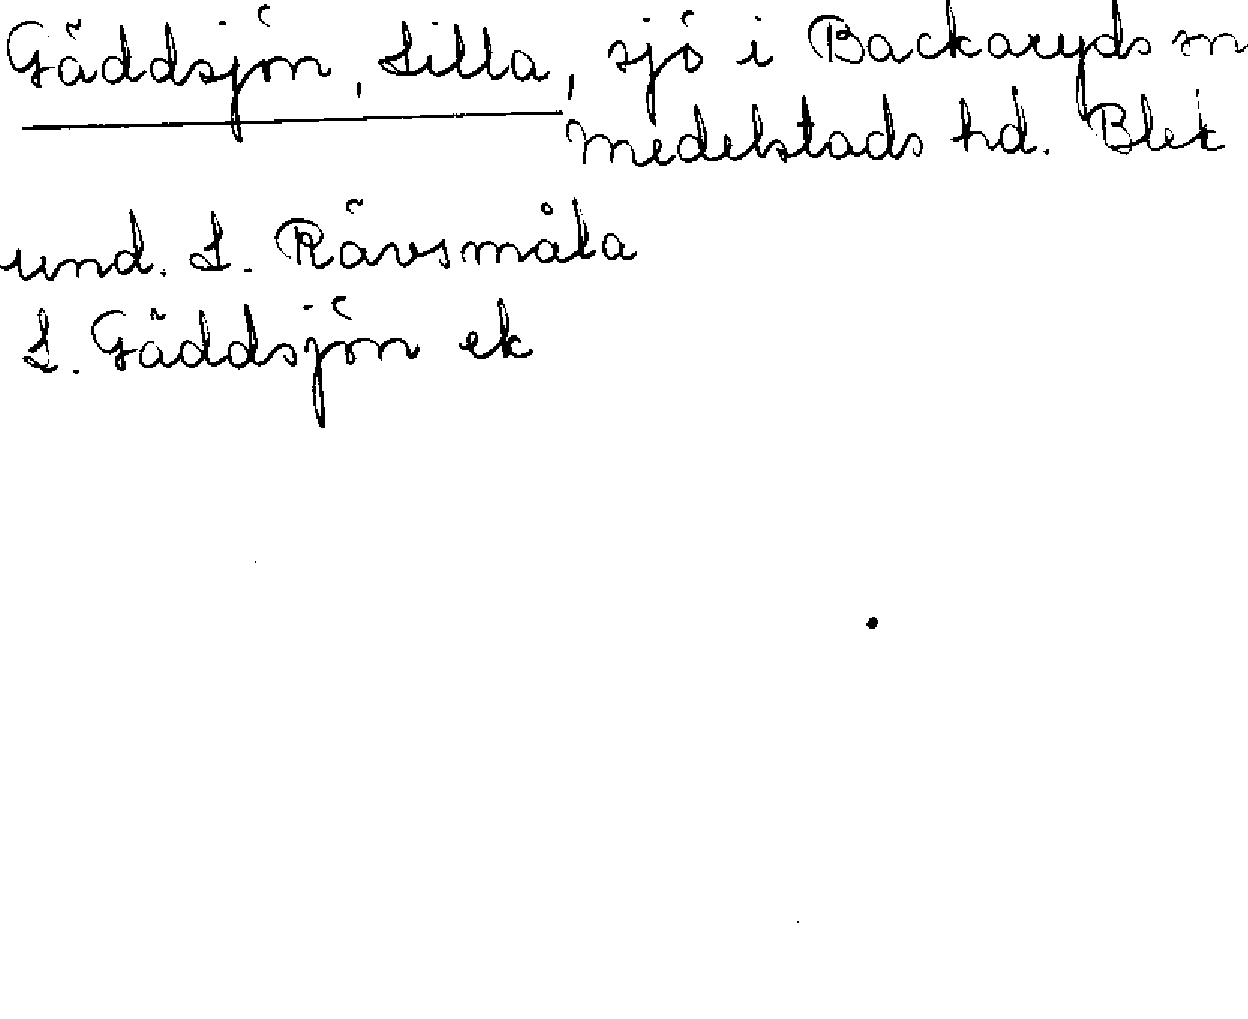 Gäddsjön, Lilla, sjö i Backaryds sn
Medelstads hd. Blek
und. L. Rävsmåla
L. Gäddsjön ek